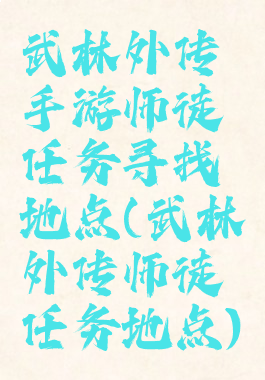 武林外传
手游师徒
任务寻找
地点(武林
外传师徒
任务地点)